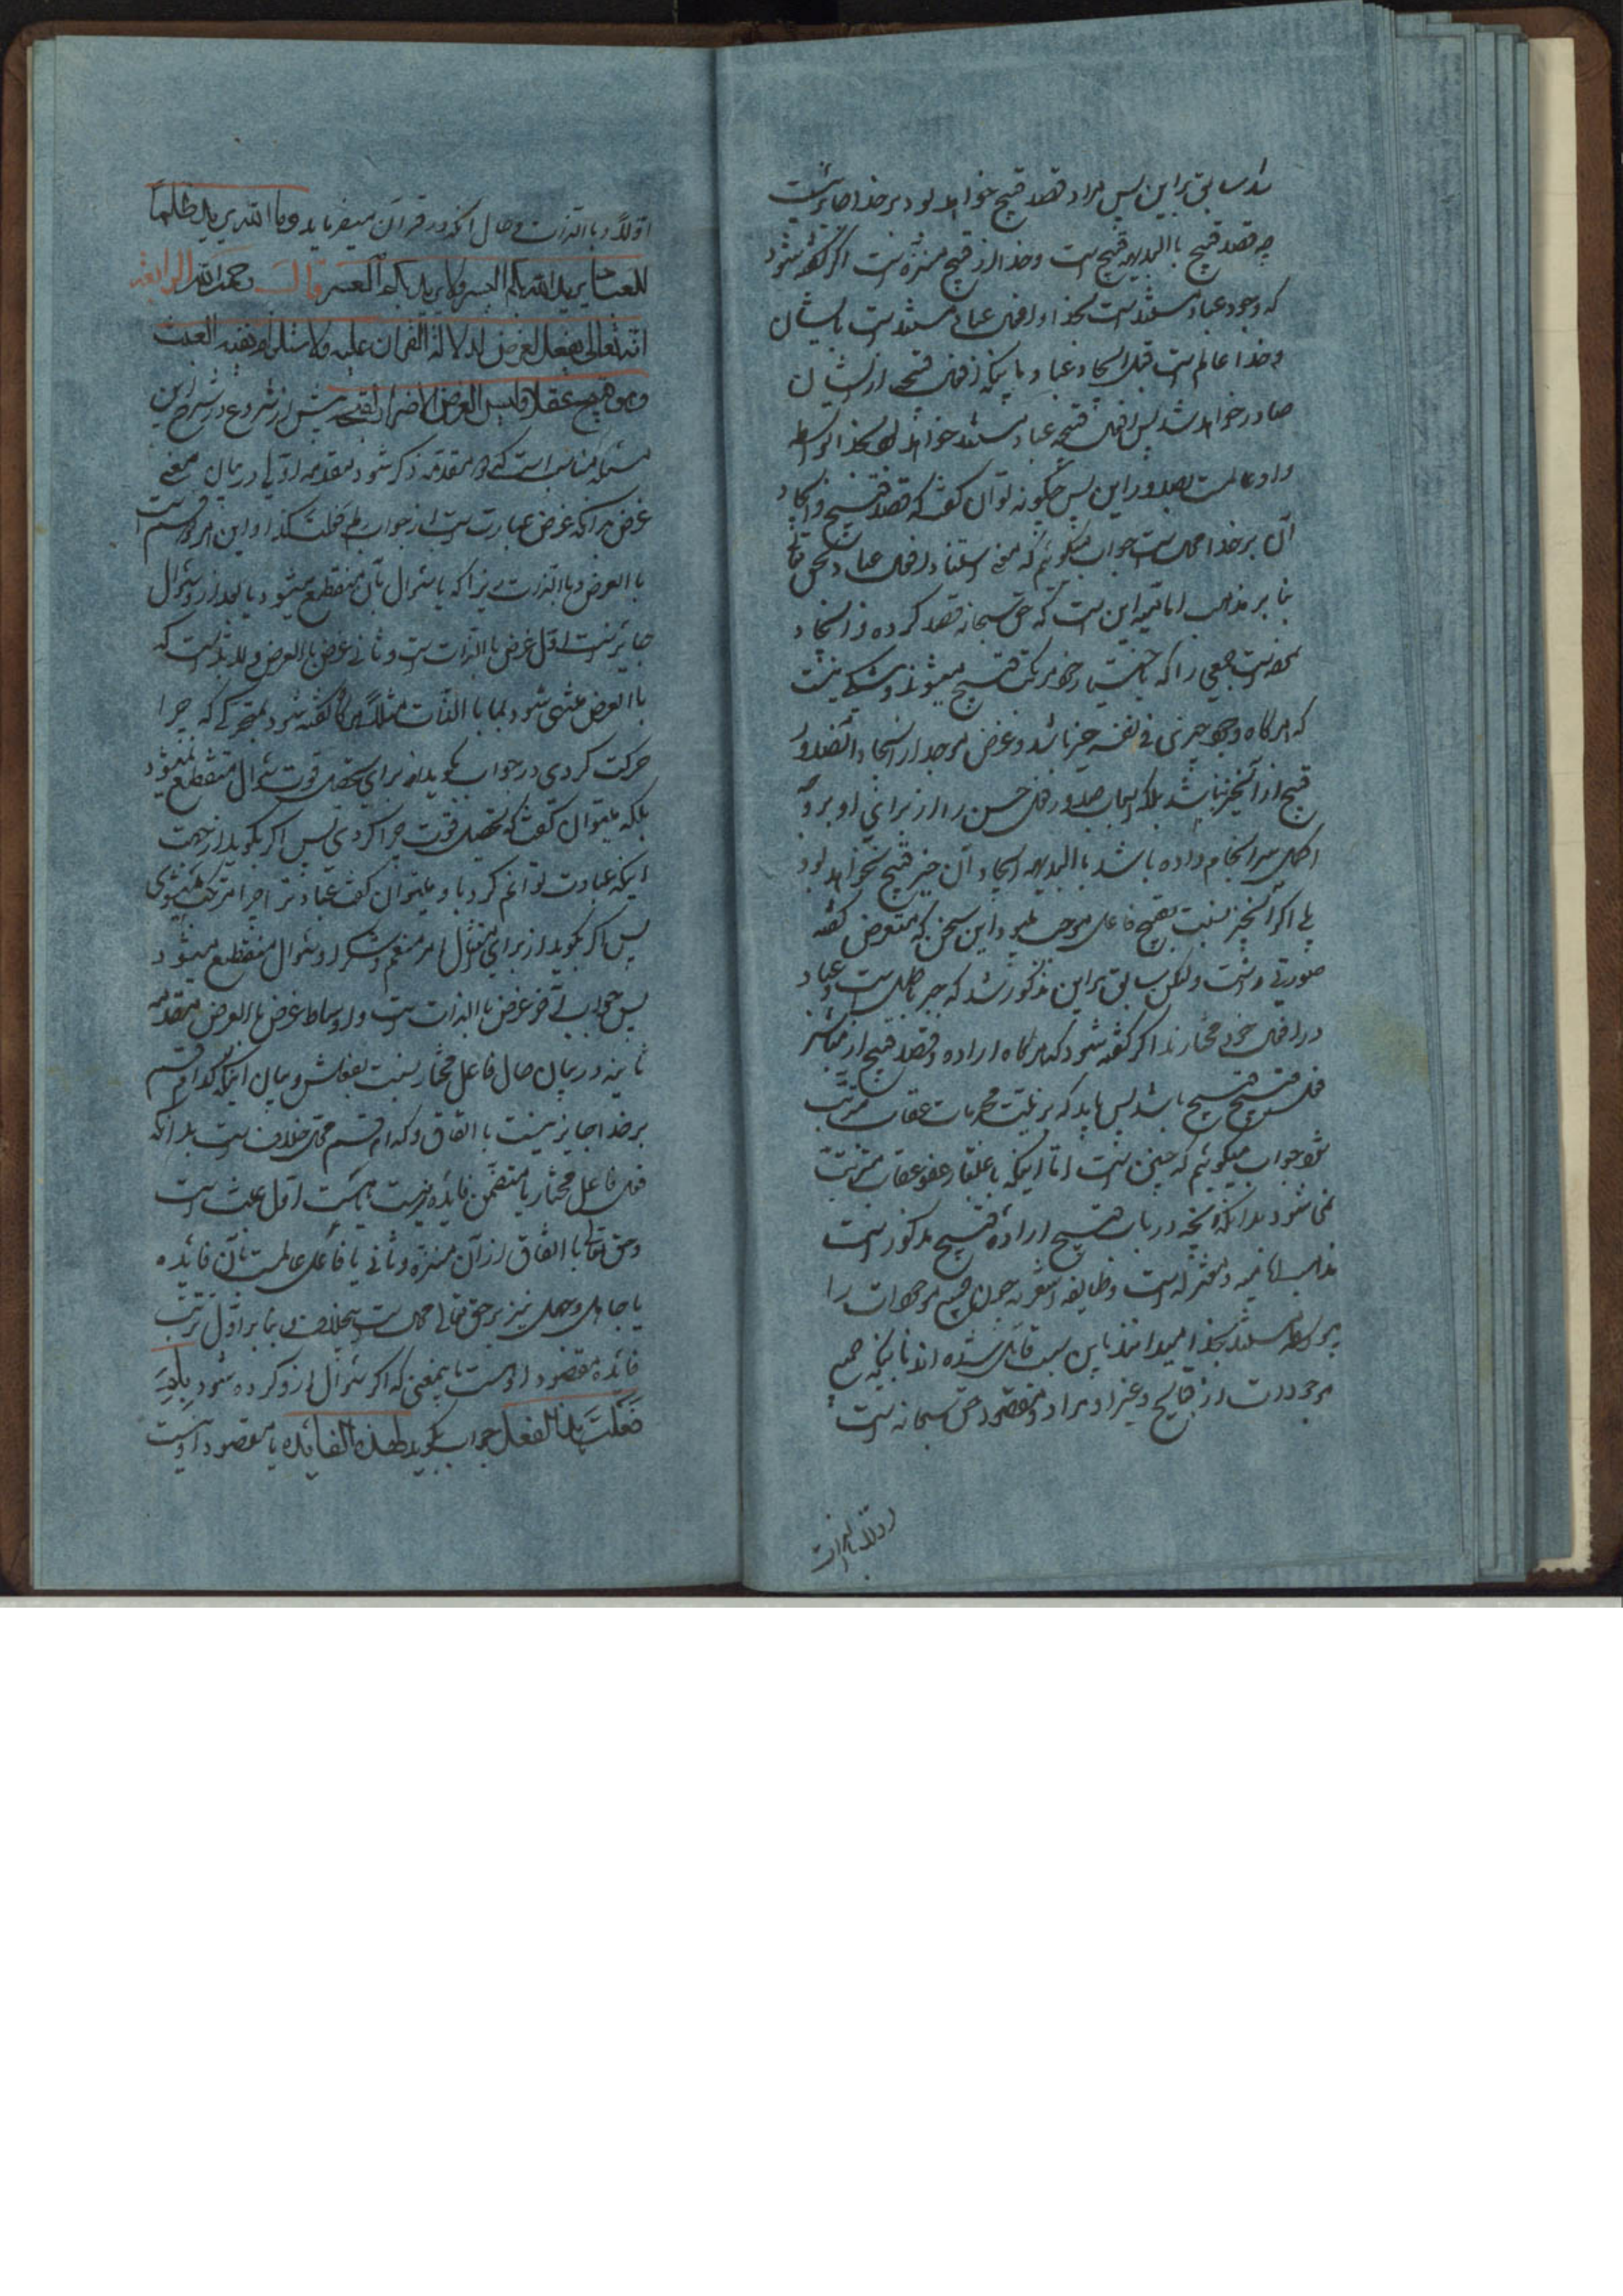 شد سابق براین پس مراد قصد قبیح خواهد بود بر خدا جایز نیست
چه قصد قبیح با البدیهه قبیح است و خدا از قبیح منزه است اگر گفته شود
که وجود عباد مستند است بخدا و افعال عباد مستند است بایشان
و خدا عالم است قبل ایجاد عباد باینکه افعال قبیحه از ایشان
صادر خواهد شد پس افعال قبیحه عباد مستند خواهد بود بخدا بواسطه
و او عالمست بصدور این پس چگونه توان گفت که قصد قبیح و ایجاد
آن بر خدا محال است جواب میگوئیم که معنی استناد افعال عباد بحق تعالی
بنا بر مذهب امامیه این است که حق سبحانه قصد کرده و ایجاد
نموده است جمعی را که باختیار خود مرتکب قبیح میشوند و شکی نیست
که هرگاه وجود چیزی فی نفسه خیر باشد و غرض موجد از ایجاد آن صدور
قبیح از آنچیز نباشد بلکه اسباب صدور فعل حسن را از برای او بر وجه
اکمل سرانجام داده باشد با البدیهه ایجاد آن چیز قبیح نخواهد بود
بلی اگر آنچیز نسبت بقبیح فاعل موجب میبود این سخن که معترض گفته
صورتی داشت ولکن سابق براین مذکور شد که جبر باطل است و عباد
در افعال خود مختارند اگر گفته شود که هرگاه اراده و قصد قبیح از مباشر
فعل قبیح قبیح باشد پس باید که بر نیت محرمات عقاب مترتب
شود جواب میگوئیم که چنین است اما اینکه باعتبار عفو عقاب مترتب
نمی شود بدانکه آنچه در باب قبح اراده قبیح مذکور است
مذهب امامیه و معتزله است و طایفه اشعریه چون جمیع موجودات را
بیواسطه مستند بخدا میدانند باین سبب قائل شده اند باینکه جمیع
موجودات از قبایح و غیر او مراد و مقصود حق سبحانه است
اولا و بالذات
اولاً و با الذات و حال آنکه در قرآن میفرماید وما الله یرید ظلماً
للعباد یرید الله بکم الیسر ولا یرید بکم العسر قال رحمه الله الرابعة
انه تعالی یفعل لغرض لدلالة القرآن علیه ولاستلزام نفیه العبث
وهو قبیح عقلا ولیس الغرض الاضرار لقبحه پیش از شروع در شرح این
مسئله مناسب است که دو مقدمه ذکر شود مقدمه اولی در بیان معنی
غرض بدانکه غرض عبارت است از جواب لم فعلت کذا و این بر دو قسم است
با العرض و با الذات زیرا که یا سئوال بآن منقطع میشود یا بعد از او سئوال
جایز است اول غرض با الذات است و ثانی غرض با العرض و لابد است که
با العرض منتهی شود بما با الذات مثلاً هرگاه گفته شود بمتحرکی که چرا
حرکت کردی در جواب بگوید از برای تحصیل قوت سئوال منقطع نمیشود
بلکه میتوان گفت که تحصیل قوت چرا کردی پس اگر بگوید از جهت
اینکه عبادت توانم کرد باو میتوان گفت عبادت را چرا مرتکب میشوی
پس اگر بگوید از برای امتثال امر منعم و شکر او سئوال منقطع میشود
پس جواب آخر غرض با الذات است و اوساط غرض با العرض مقدمه
ثانیه در بیان حال فاعل مختار نسبت بفعلش و بیان اینکه کدام قسم
بر خدا جایز نیست با اتفاق و کدام قسم محل خلاف است بدانکه
فعل فاعل مختار یا متضمن فایده نیست یا هست اول عبث است
و حق تعالی با اتفاق از آن منزه و ثانی یا فاعل عالمست بآن فائده
یا جاهل و جهل نیز بر حق تعالی محال است بیخلاف و بنا بر اول ترتب
فائده مقصود اوست باینمعنی که اگر سئوال از او کرده شود بلم
فعلت هذا الفعل جواب بگوید لهذه الفائده یا مقصود او نیست